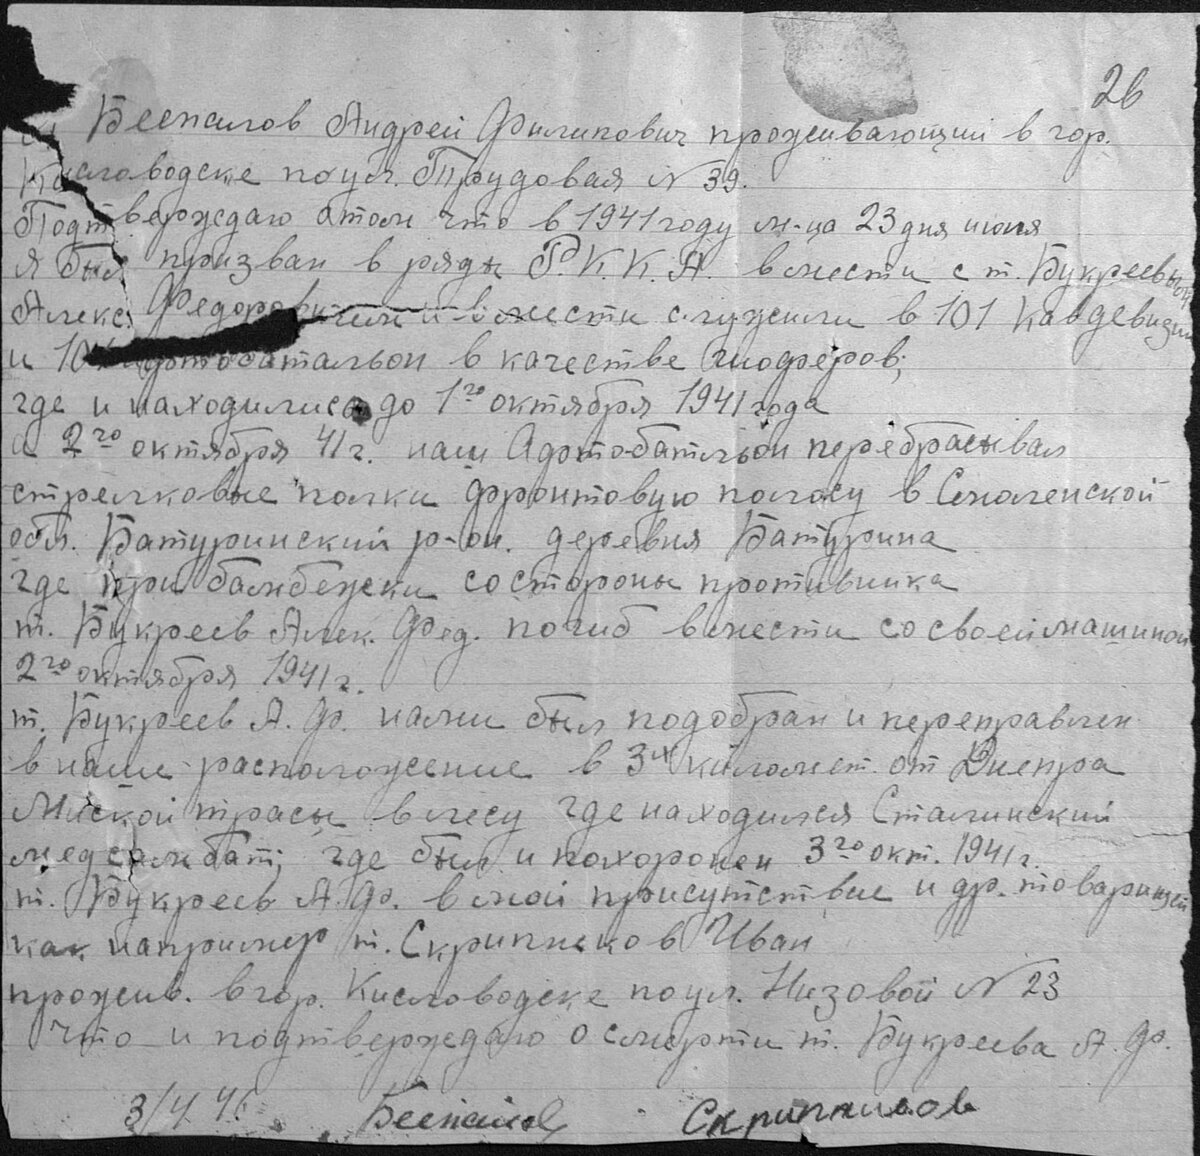 26
Беспалов Андрей Филипович проживающий в гор.
Кисловодске по ул. Трудовая N 39.
Подтверждаю втом что в 1941 году м-ца 23 дня июня
я был призван в ряды Р.К.К.А. вмести с т. Букреевым
Алекс. Федоровичем и вмести служили в 101 Кавдевизии
и 101 автобатальон в качестве шофёров;
где и находились до 1го октября 1941 года
а 2го октября 41 г. наш Автобатальон перебрасывал
стрелковые полки фронтовую полосу в Смоленской
обл. Батуринский р-он. деревня Батурина
где при бамбежки со стороны противника
т. Букреев Алек. Фед. погиб вмести со своей машиной
2го октября 1941 г.
т. Букреев А. Ф. нами был подобран и переправлен
в наше расположение в 3х километ. от Днепра
Миской трасы в лесу где находился Сталинский
медсамбат; где был и похоронен 3го окт. 1941 г.
т. Букреев А. Ф. в мой присутствие и др. товарищей
как например т. Скрипников Иван
прожив. в гор. Кисловодске по ул. Низовой N 23
Что и подтверждаю о смерти т. Букреева А. Ф.
3/V 4 Беспалов Скрипников